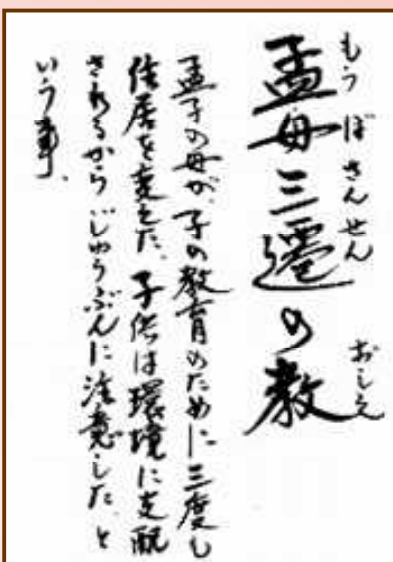 もうぼさんせん おしえ
孟母三遷の教
孟子の母が、子の教育のために三度も
住居を変えた。子供は環境に支配
されるからじゅうぶんに注意した、と
いう事、